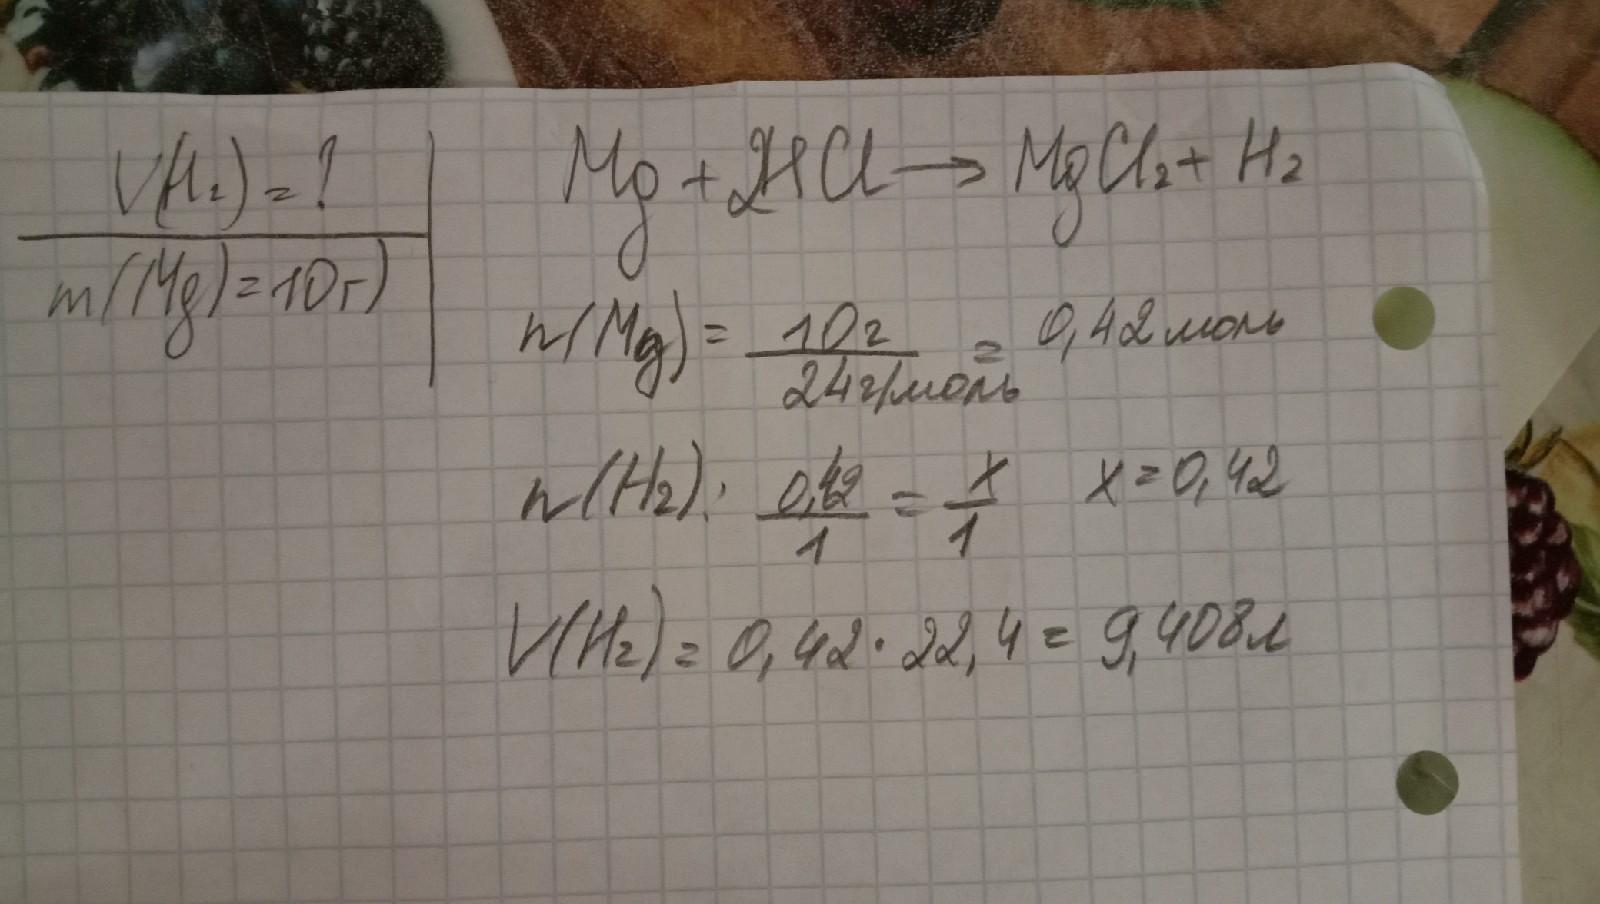 V(H₂)=?
m(Mg)=10г)
Mg + 2HCl → MgCl₂ + H₂
n(Mg) = 10г / 24г/моль = 0,42 моль
n(H₂): 0,42/1 = x/1 x = 0,42
V(H₂) = 0,42 · 22,4 = 9,408л